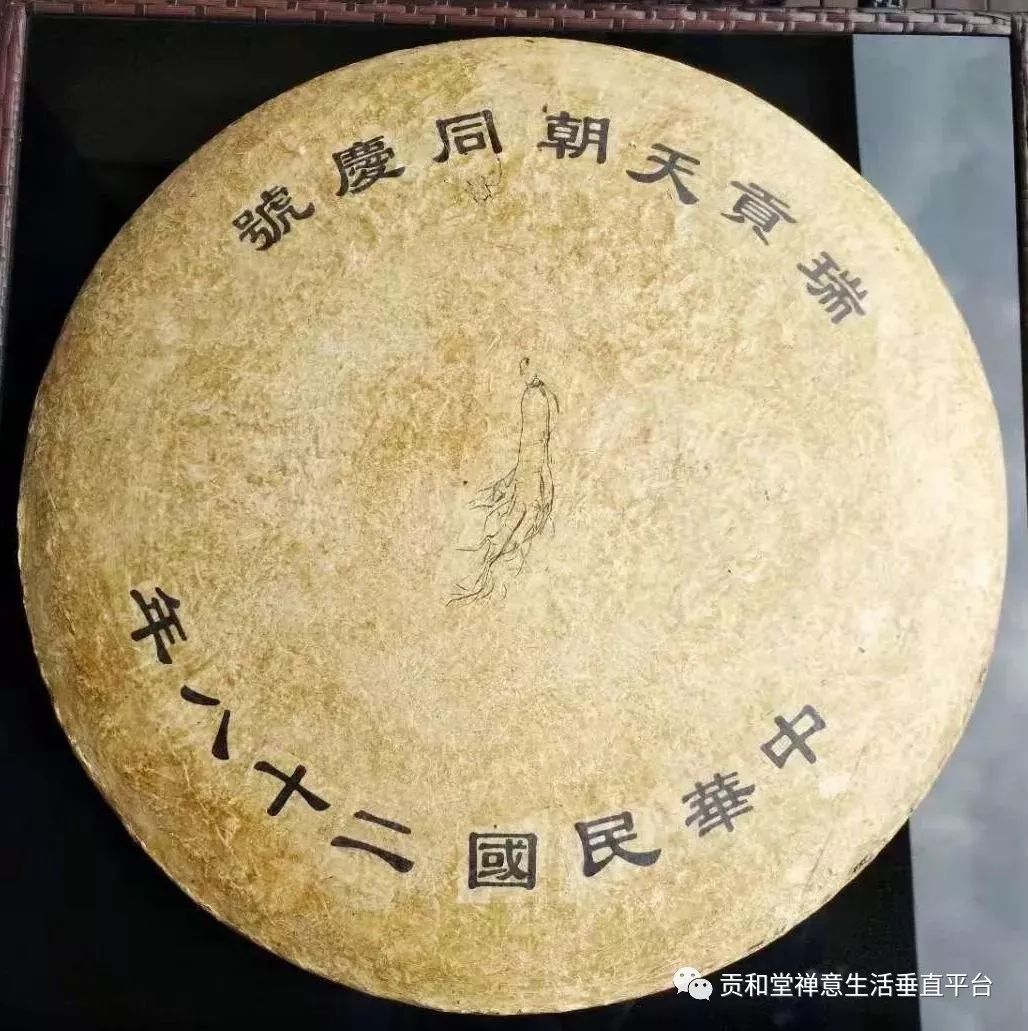 瑞貢天朝同慶號
中華民國二十八年
贡和堂禅意生活垂直平台